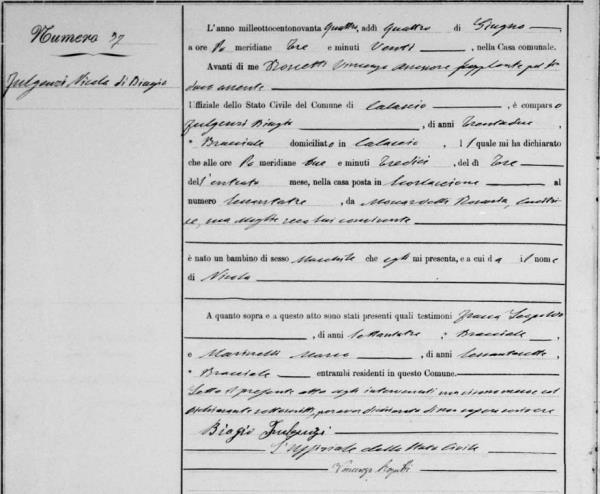 Numero 37
Fulgenzi Nicola di Biagio
L'anno milleottocentonovanta quattro, addì quattro di Giugno,
a ore Po meridiane tre e minuti venti, nella Casa comunale.
Avanti di me Vincenzo Assessore Supplente pel
assente
Uffiziale dello Stato Civile del Comune di Calascio, è comparso
Fulgenzi Biagio, di anni trentadue,
Bracciale domiciliato in Calascio, il quale mi ha dichiarato
che alle ore Po meridiane due e minuti tredici, del dì tre
dell'entrato mese, nella casa posta in al
numero sessantatre, da Rosaria,
sua moglie seco lui convivente
è nato un bambino di sesso Maschile che egli mi presenta, e a cui dà il nome
di Nicola
A quanto sopra e a questo atto sono stati presenti quali testimoni
, di anni settantatre, Bracciale,
e Marinelli Marco, di anni,
Bracciale entrambi residenti in questo Comune.
Letto il presente atto agli intervenuti,
Dichiarante
Biagio Fulgenzi
L'Uffiziale dello Stato Civile
Vincenzo